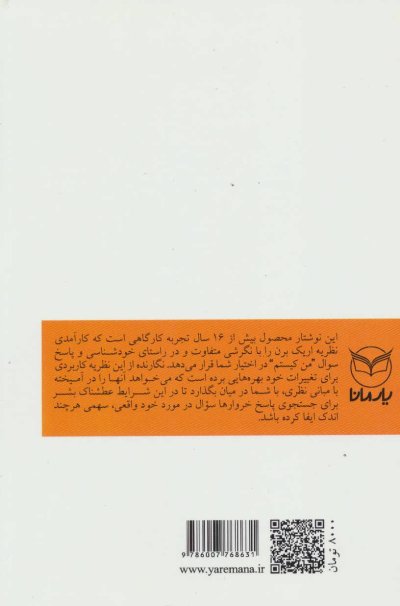 این نوشتار محصول بیش از ۱۶ سال تجربه کارگاهی است که کارآمدی
نظریه اریک برن را با نگرشی متفاوت و در راستای خودشناسی و پاسخ
سوال "من کیستم" در اختیار شما قرار می‌دهد. نگارنده از این نظریه کاربردی
برای تغییرات خود بهره‌هایی برده است که می‌خواهد آنها را در آمیخته
با مبانی نظری، با شما در میان بگذارد تا در این شرایط عطشناک بشر
برای جستجوی پاسخ خروارها سؤال در مورد خود واقعی، سهمی هرچند
اندک ایفا کرده باشد.
یارمانا
9 786007 768631
www.yaremana.ir
۸۰۰۰ تومان